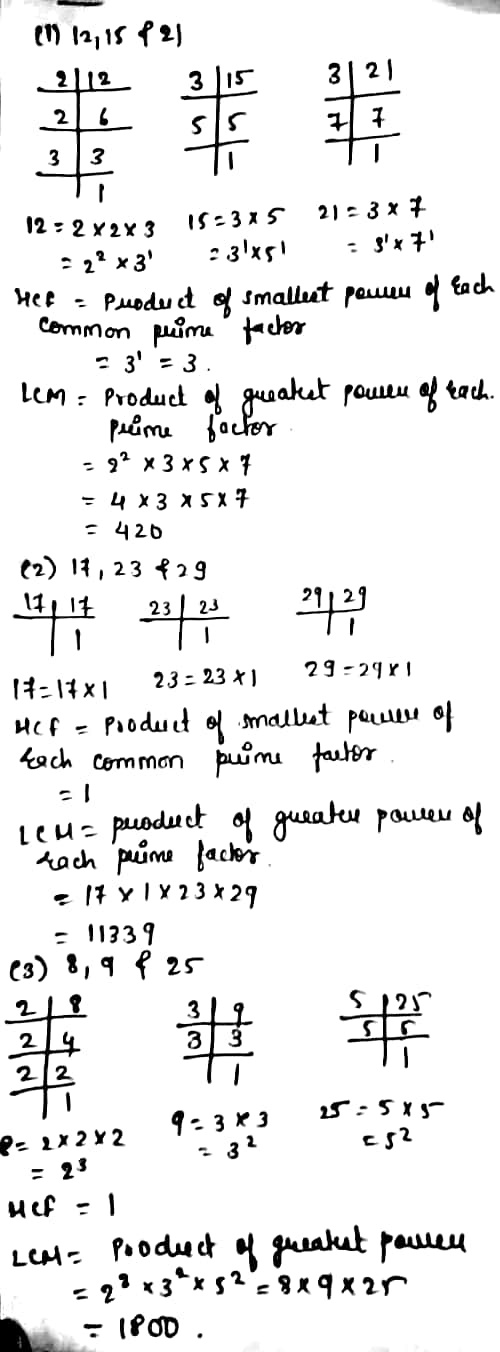 (1) 12, 15 & 21
2 | 12   3 | 15   3 | 21
2 | 6   5 | 5   7 | 7
3 | 3   1   1
1
12 = 2 × 2 × 3   15 = 3 × 5   21 = 3 × 7
= 2² × 3¹   = 3¹ × 5¹   = 3¹ × 7¹
HCF = Product of smallest power of Each
Common prime factor
= 3¹ = 3.
LCM = Product of greatest power of Each.
prime factor
= 2² × 3 × 5 × 7
= 4 × 3 × 5 × 7
= 420
(2) 17, 23 & 29
17 | 17   23 | 23   29 | 29
1   1   1
17 = 17 × 1   23 = 23 × 1   29 = 29 × 1
HCF = Product of smallest power of
Each common prime factor.
= 1
LCM = product of greater power of
Each prime factor.
= 17 × 1 × 23 × 29
= 11339
(3) 8, 9 & 25
2 | 8   3 | 9   5 | 25
2 | 4   3 | 3   5 | 5
2 | 2   1   1
1
8 = 2 × 2 × 2   9 = 3 × 3   25 = 5 × 5
= 2³   = 3²   = 5²
HCF = 1
LCM = Product of greatest power
= 2³ × 3² × 5² = 8 × 9 × 25
= 1800.